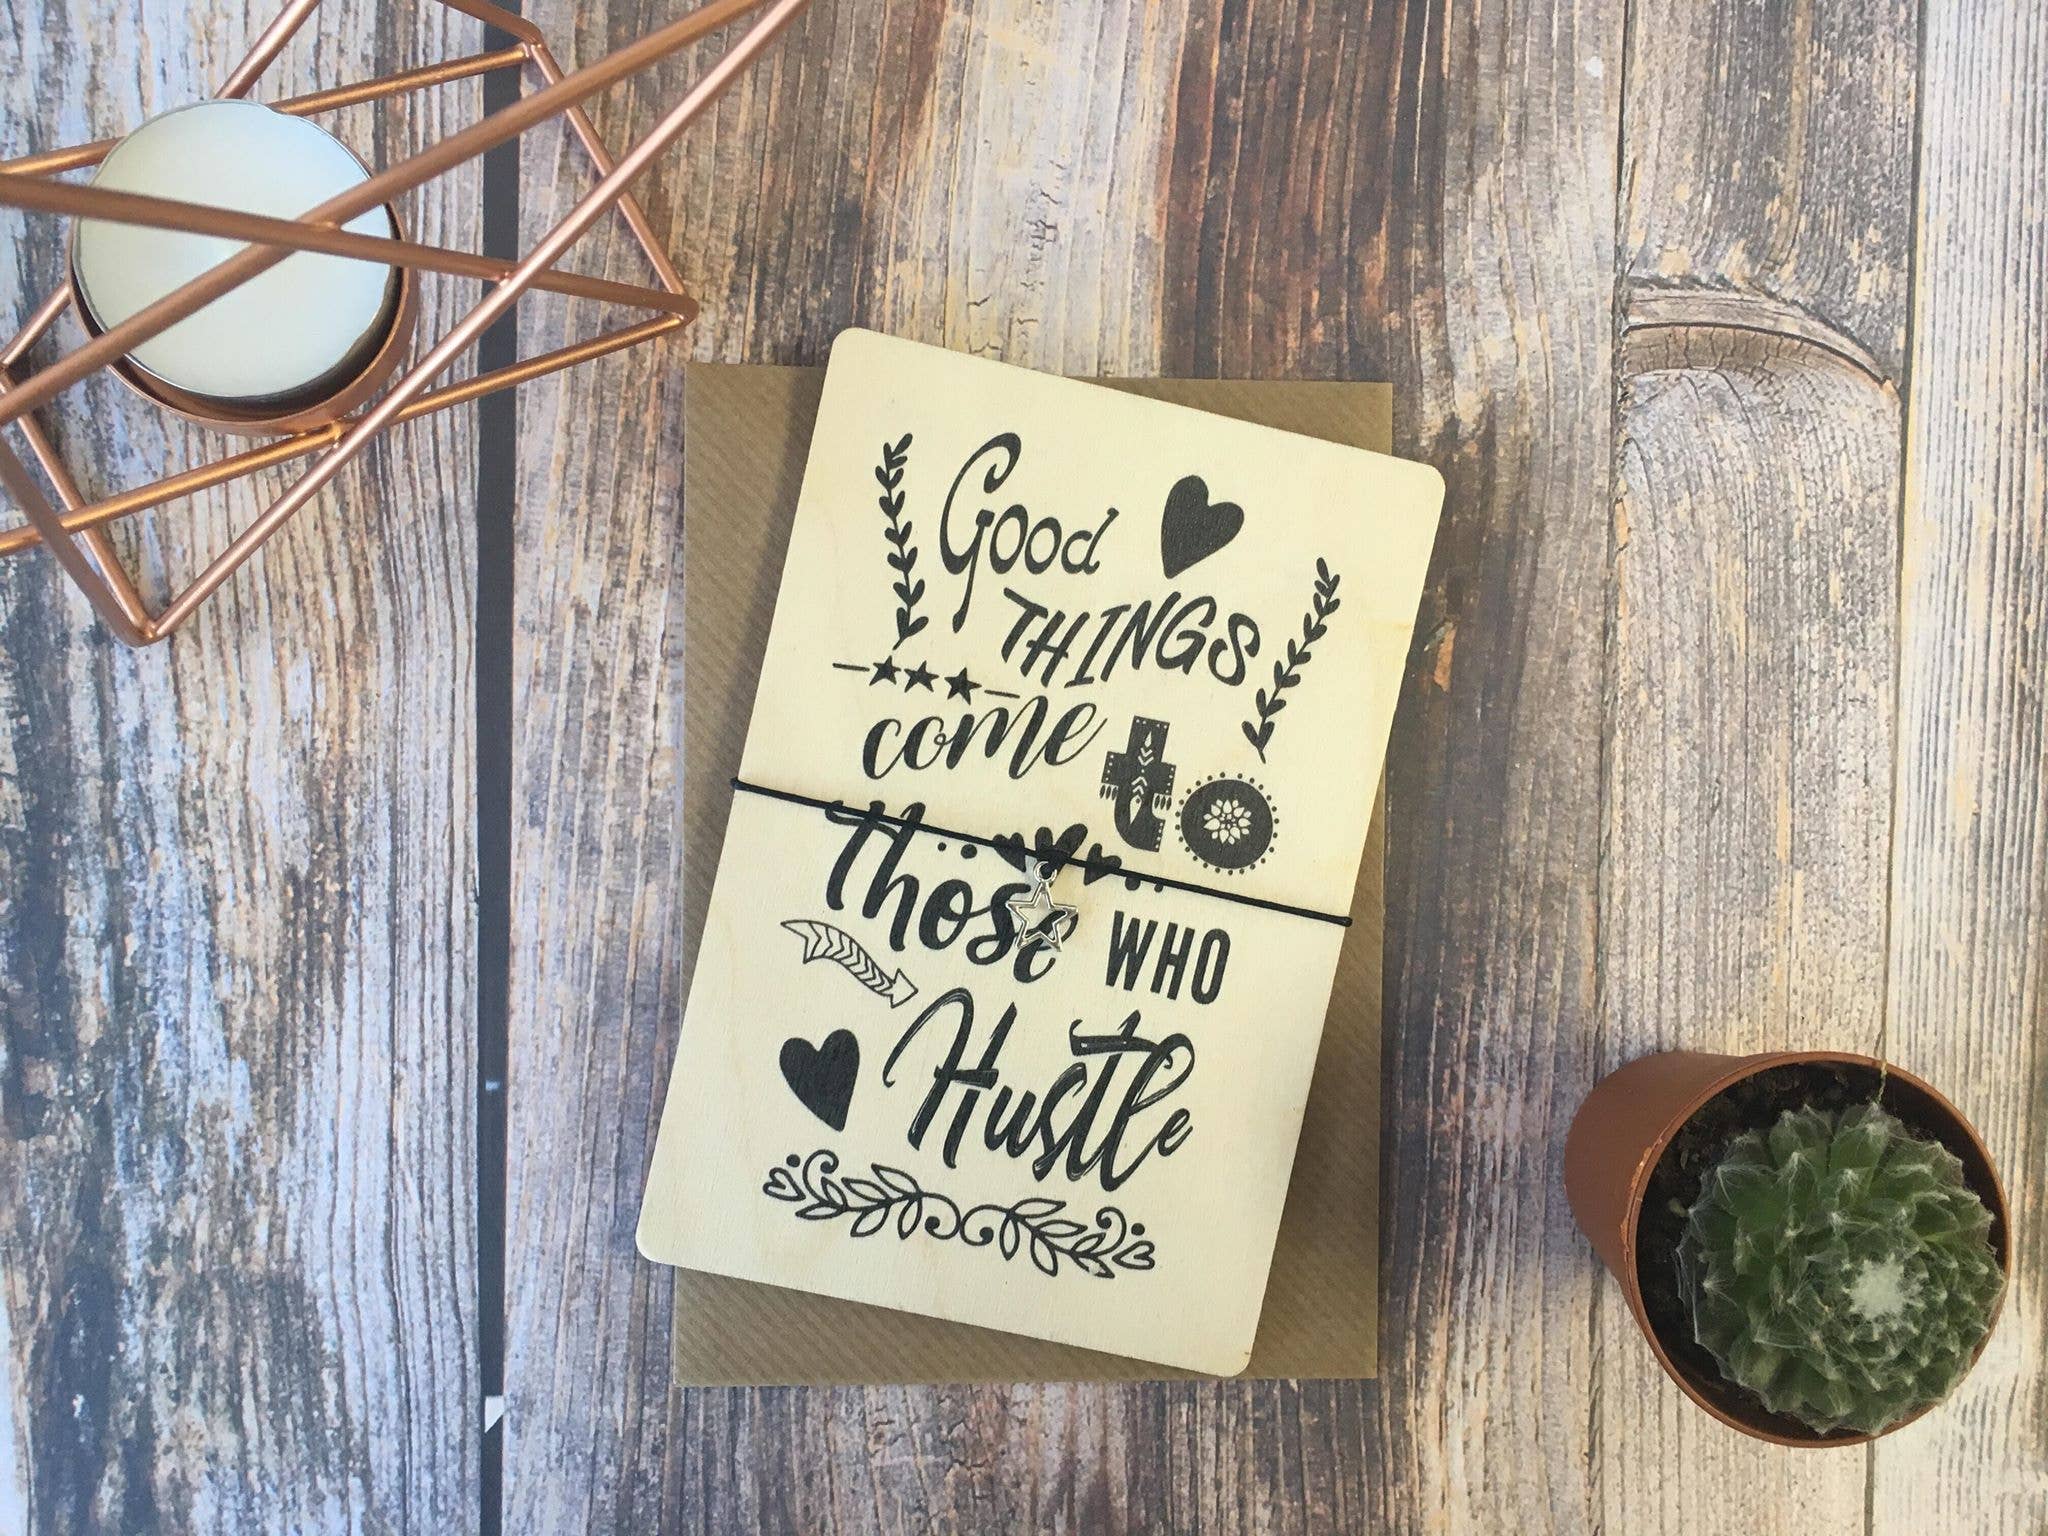 Good
THINGS
come to
Those WHO
Hustle